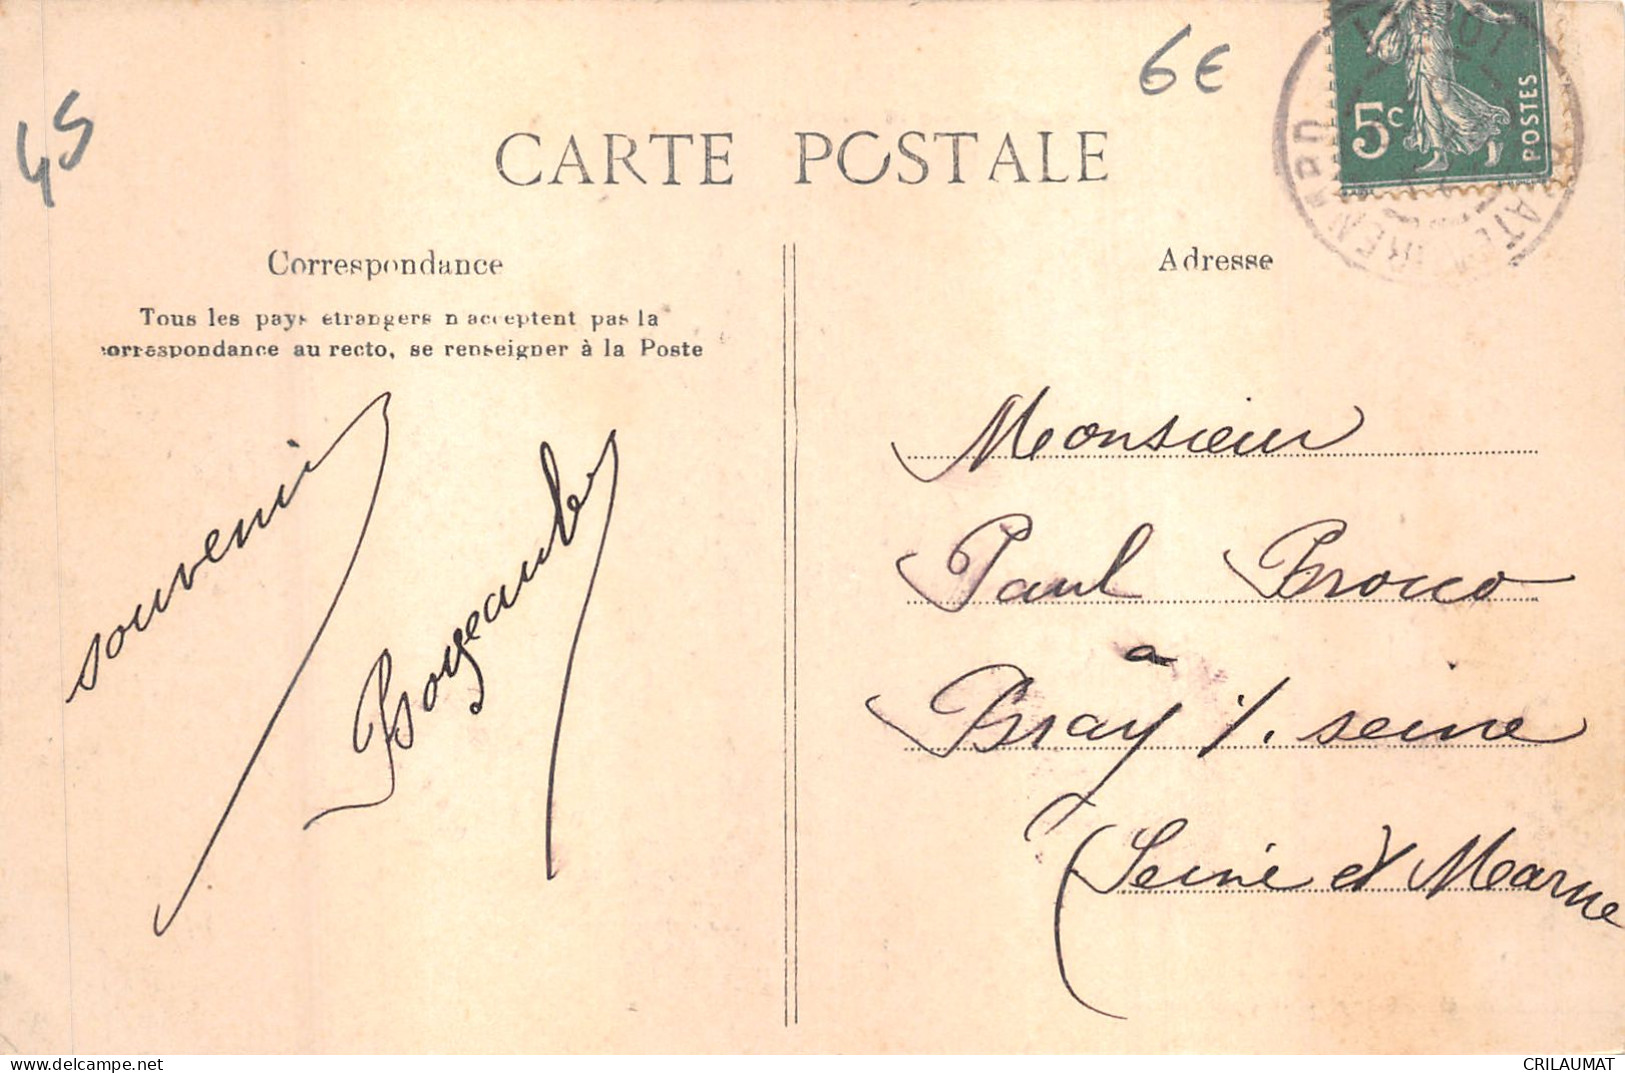 45
6€
CARTE POSTALE
5c
POSTES
Correspondance
Adresse
Tous les pays etrangers n acceptent pas la
orrespondance au recto, se renseigner à la Poste
souvenir
Monsieur
Paul Brocco
a
Bray s/. seine
(Seine et Marne
CRILAUMAT